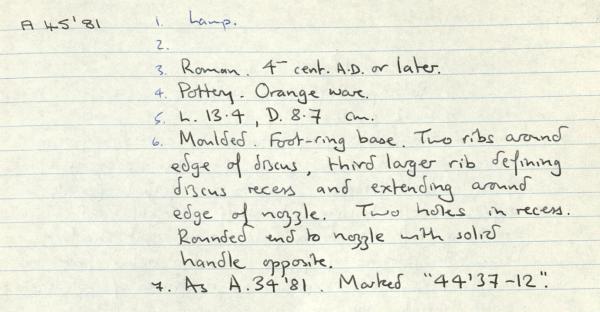 A 45'81 1. Lamp.
2.
3. Roman. 4th cent. A.D. or later.
4. Pottery. Orange ware.
5. L. 13.4, D. 8.7 cm.
6. Moulded. Foot-ring base. Two ribs around
edge of discus, third larger rib defining
discus recess and extending around
edge of nozzle. Two holes in recess.
Rounded end to nozzle with solid
handle opposite.
7. As A.34'81. Marked "44'37-12".